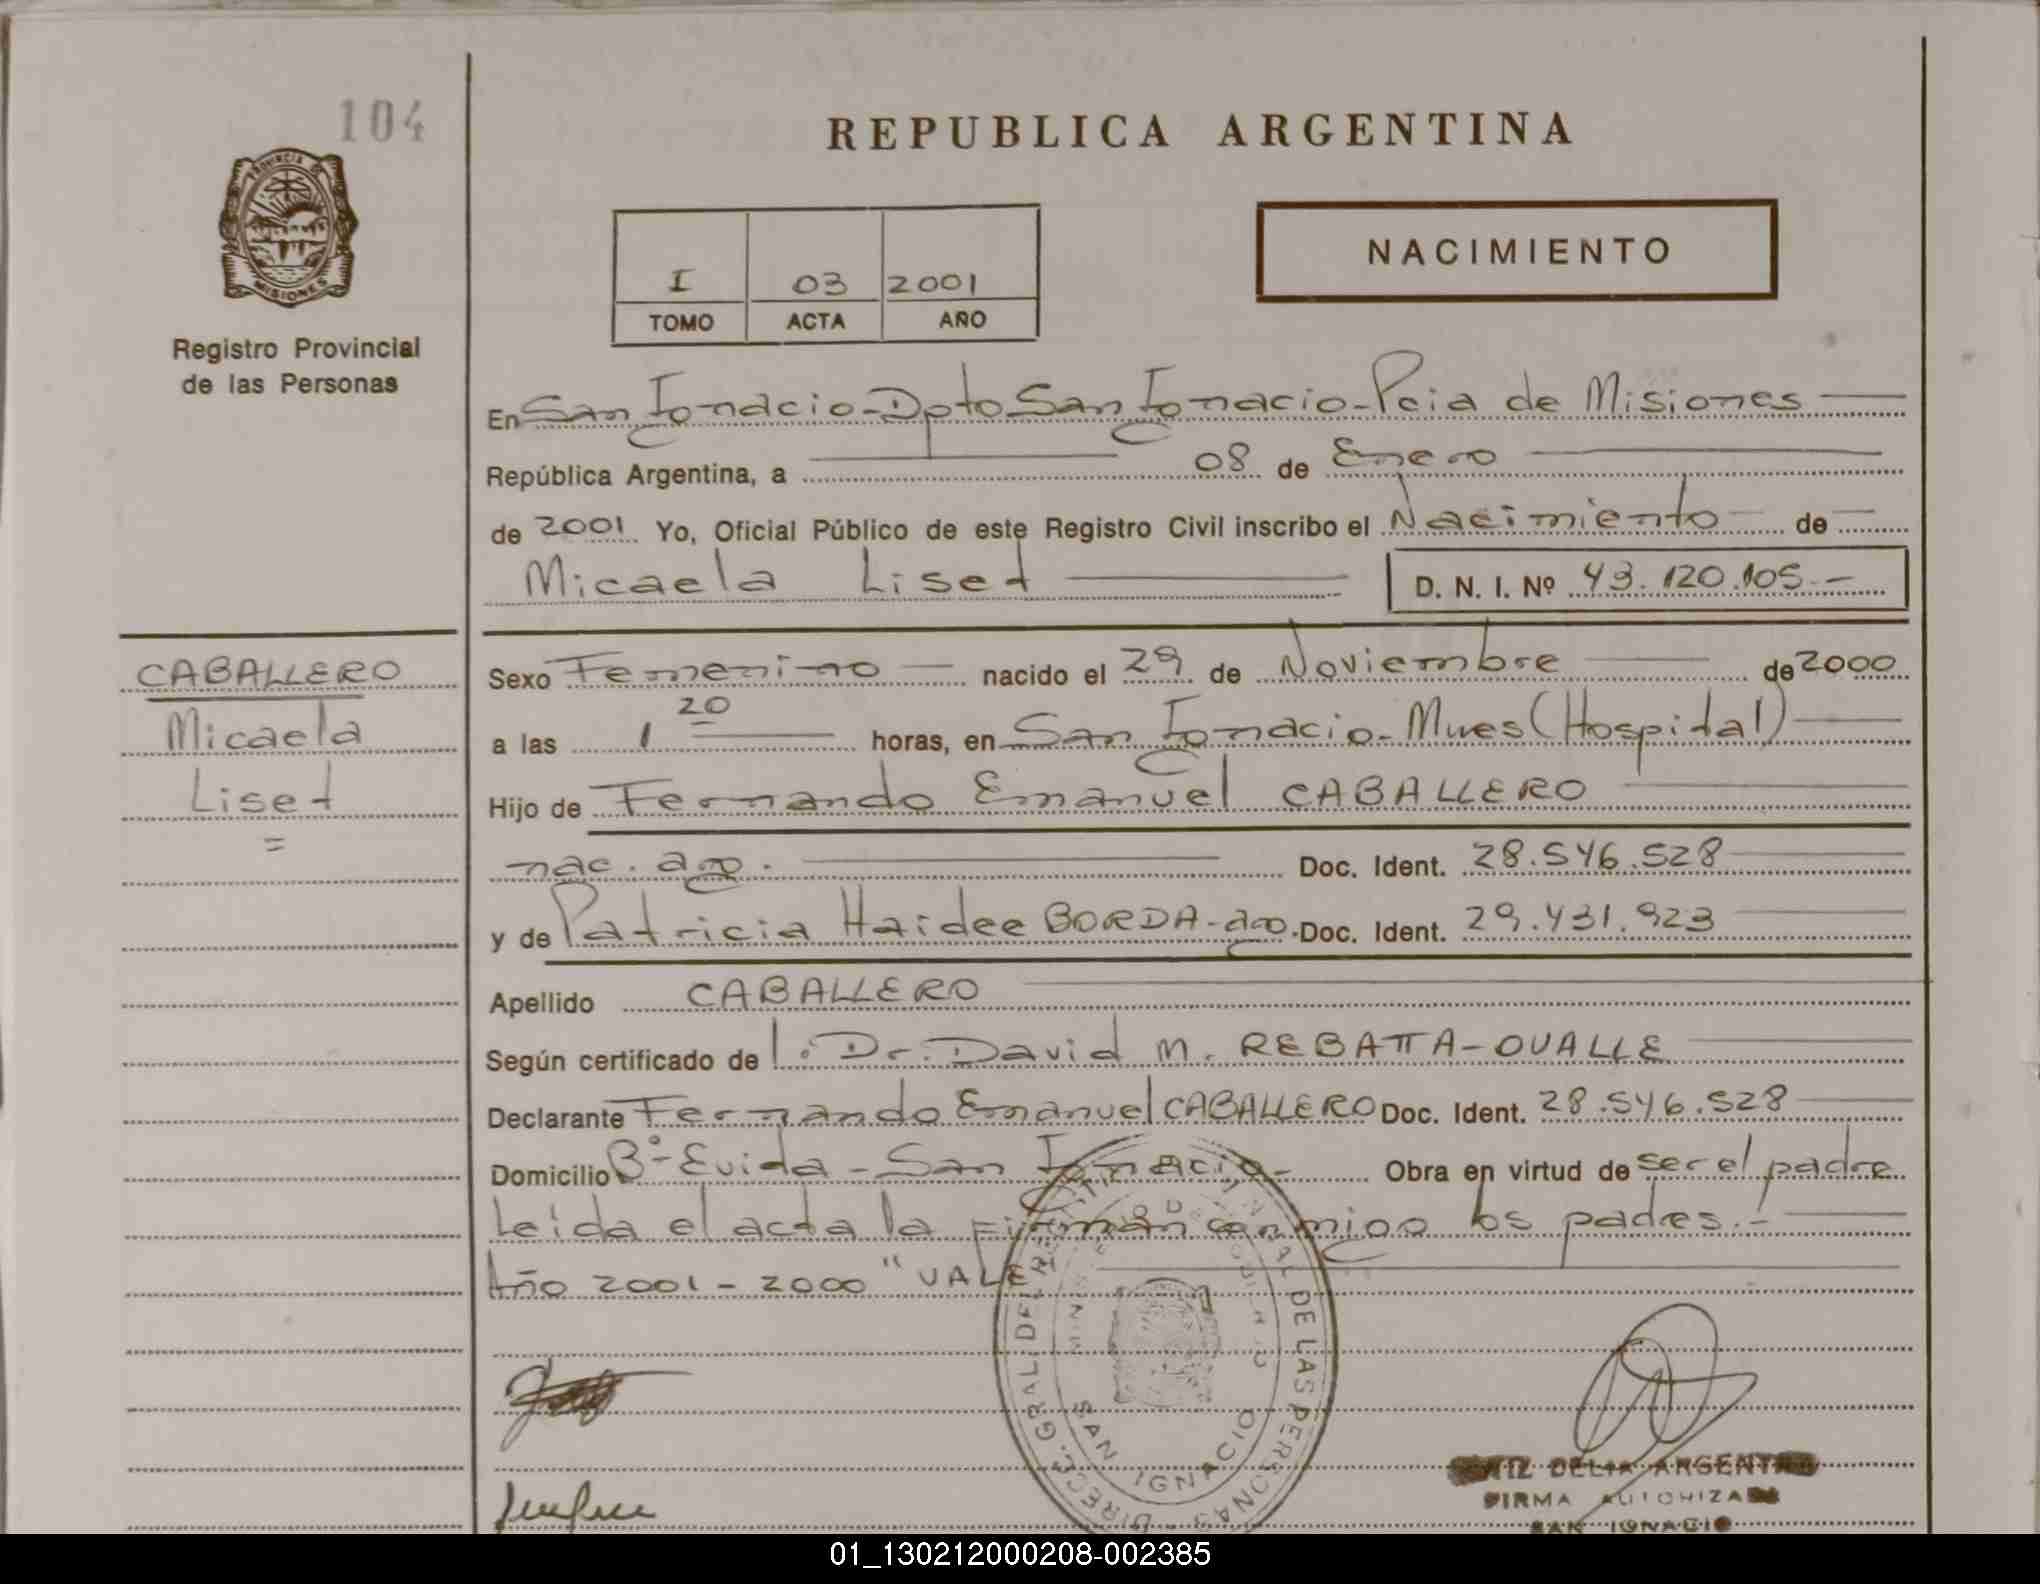 104
REPUBLICA ARGENTINA
PROVINCIA DE
MISIONES
Registro Provincial
de las Personas
I 03 2001
TOMO ACTA AÑO
NACIMIENTO
En San Ignacio - Dpto San Ignacio - Pcia de Misiones
República Argentina, a 08 de Enero
de 2001 Yo, Oficial Público de este Registro Civil inscribo el Nacimiento de
Micaela Liset D. N. I. Nº 43.120.105.-
CABALLERO
Micaela
Liset
=
Sexo Femenino nacido el 29 de Noviembre de 2000
a las 1 20 horas, en San Ignacio - Mnes (Hospital)
Hijo de Fernando Emanuel CABALLERO
nac. arg. Doc. Ident. 28.546.528
y de Patricia Haidee BORDA - arg. Doc. Ident. 29.431.923
Apellido CABALLERO
Según certificado de l. Dr. David M. REBATTA - OVALLE
Declarante Fernando Emanuel CABALLERO Doc. Ident. 28.546.528
Domicilio Bº Evida - San Ignacio - Obra en virtud de ser el padre
Leida el acta la Firman conmigo los padres.-
Año 2001 - 2000 "VALE
DIRECC. GRAL. DEL REGISTRO PROVINCIAL DE LAS PERSONAS
MINISTERIO DE GOBIERNO
SAN IGNACIO
DELIA ARGENTINA
FIRMA AUTORIZADA
SAN IGNACIO
01_130212000208-002385